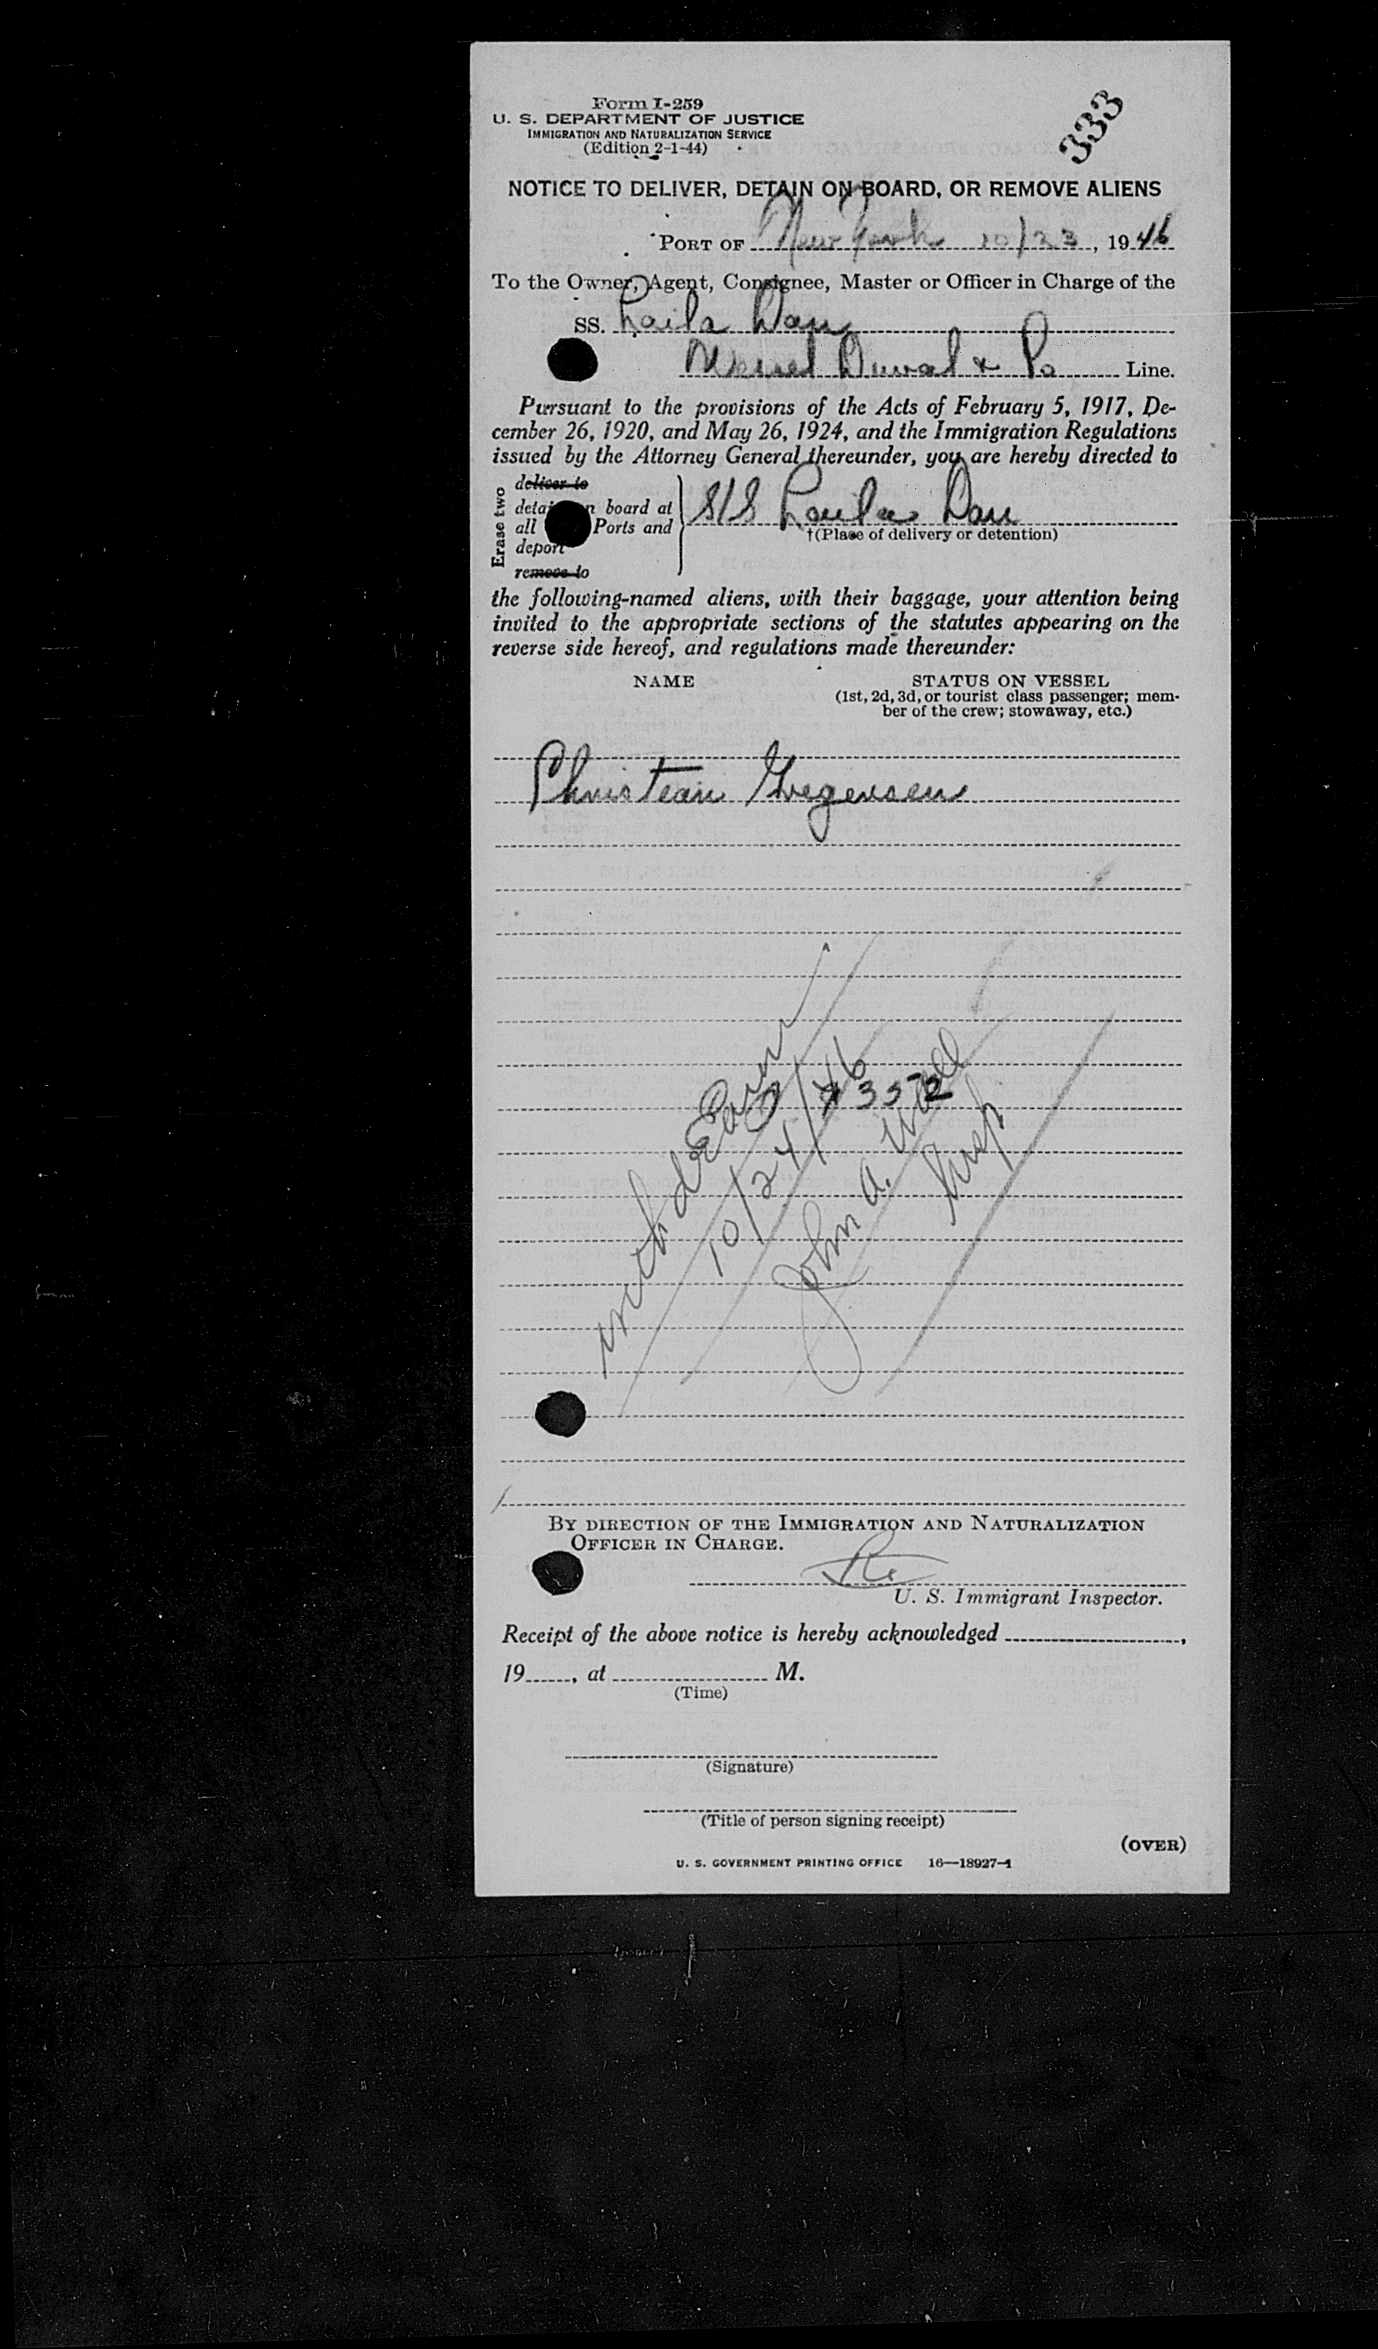 Form I-259
U. S. DEPARTMENT OF JUSTICE
IMMIGRATION AND NATURALIZATION SERVICE
(Edition 2-1-44)
333
NOTICE TO DELIVER, DETAIN ON BOARD, OR REMOVE ALIENS
PORT OF New York 10/23, 1946
To the Owner, Agent, Consignee, Master or Officer in Charge of the
SS. Laila Dan
Duval & Co Line.
Pursuant to the provisions of the Acts of February 5, 1917, De-
cember 26, 1920, and May 26, 1924, and the Immigration Regulations
issued by the Attorney General thereunder, you are hereby directed to
Erase two
deliver to
detain on board at
all Ports and
deport
remove to
S/S Laila Dan
†(Place of delivery or detention)
the following-named aliens, with their baggage, your attention being
invited to the appropriate sections of the statutes appearing on the
reverse side hereof, and regulations made thereunder:
NAME
STATUS ON VESSEL
(1st, 2d, 3d, or tourist class passenger; mem-
ber of the crew; stowaway, etc.)
Christian Gregersen
10/24/46
3572
John A. Wall
Insp
BY DIRECTION OF THE IMMIGRATION AND NATURALIZATION
OFFICER IN CHARGE.
U. S. Immigrant Inspector.
Receipt of the above notice is hereby acknowledged ,
19 , at M.
(Time)
(Signature)
(Title of person signing receipt)
(OVER)
U. S. GOVERNMENT PRINTING OFFICE 16—18927-1